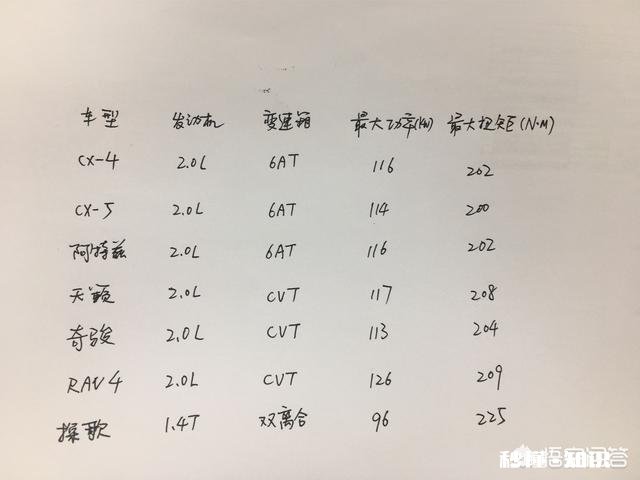 车型 发动机 变速箱 最大功率(KW) 最大扭矩(N·M)
CX-4 2.0L 6AT 116 202
CX-5 2.0L 6AT 114 200
阿特兹 2.0L 6AT 116 202
天籁 2.0L CVT 117 208
奇骏 2.0L CVT 113 204
RAV4 2.0L CVT 126 209
探歌 1.4T 双离合 96 225
悟空问答
秒懂-知识